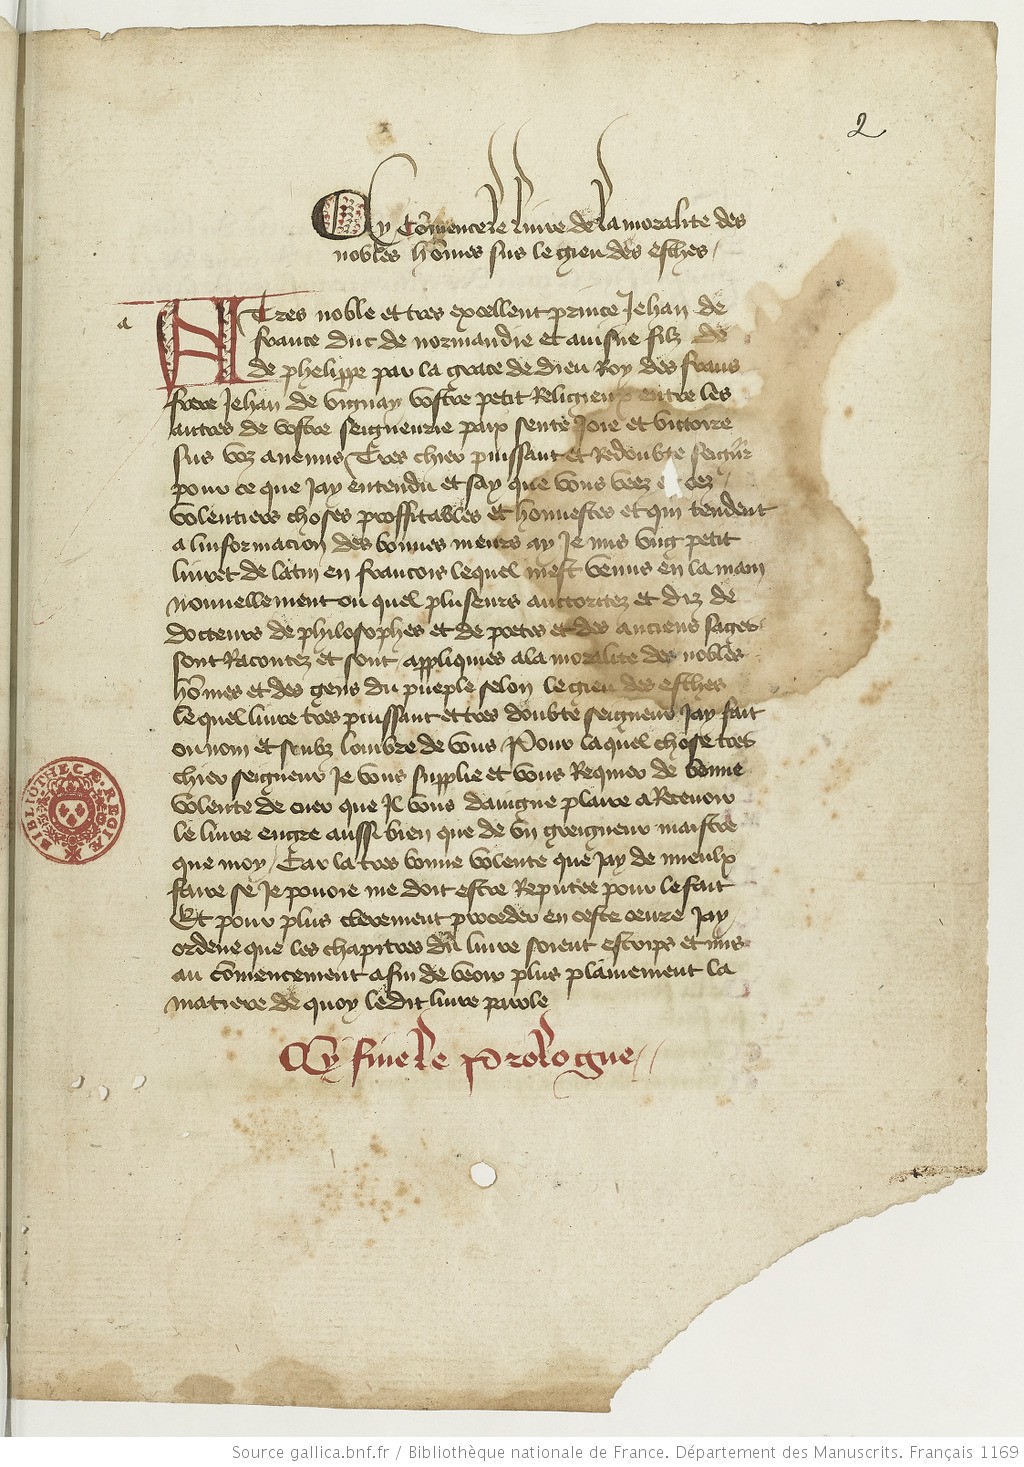 2
Cy cōmence le liure de la moralite des
nobles hōmes sus le gieu des esches
a
A Tres noble et tres excellent prince Jehan de
france duc de normandie et auisne filz de
de phelippe par la grace de dieu Roy des frans
frere Jehan de vignay vostre petit Religieux entre les
autres de vostre seigneurie paix sente Joie et victoire
sus voz anemis Tres chier puissant et Redoubte seignr
pour ce que Jay entendu et say que vous veez et oez
volentiers choses proffitables et honnestes et qui tendent
a linformacion des bonnes meurs ay Je mis vng petit
liuret de latin en francois lequel mest venus en la main
nouuellement ou quel pluseurs auctoritez et diz de
docteurs de philosophes et de poetes et des anciens sages
sont Racontez et sont appliquies a la moralite des nobles
hōmes et des gens du pueple selon le gieu des esches
le quel liure tres puissant et tres doubte seigneur Jay fait
ou nom et soubz lombre de vous Pour laquel chose tres
chier seigneur Je vous supplie et vous Requier de bonne
volente de cuer que Il vous daingne plaire a Receuoir
le liure en gre aussi bien que de vn greigneur maistre
que moy Car la tres bonne volente que Jay de mieulx
faire se Je pouoie me doit estre Reputee pour le fait
Et pour plus clerement proceder en ceste oeuure Jay
ordene que les chapitres du liure soient escrips et mis
au cōmencement afin de veoir plus plainement la
matiere de quoy ledit liure parole
Cy fine le Prologue
BIBLIOTHECÆ REGIÆ
Source gallica.bnf.fr / Bibliothèque nationale de France. Département des Manuscrits. Français 1169